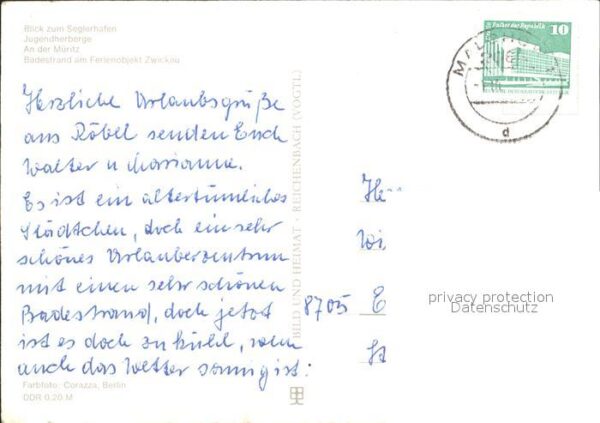 Blick zum Seglerhafen
Jugendherberge
An der Müritz
Badestrand am Ferienobjekt Zwickau
Herzliche Urlaubsgrüße
aus Röbel senden Euch
Walter u Marianne.
Es ist ein altertümliches
Städtchen, doch ein sehr
schönes Urlauberzentrum
mit einen sehr schönen
Badestrand, doch jetzt
ist es doch zu kühl, wenn
auch das Wetter sonnig ist.
Farbfoto: Corazza, Berlin
DDR 0,20 M
BILD UND HEIMAT · REICHENBACH (VOGTL)
Palast der Republik
10
d
8705
privacy protection
Datenschutz